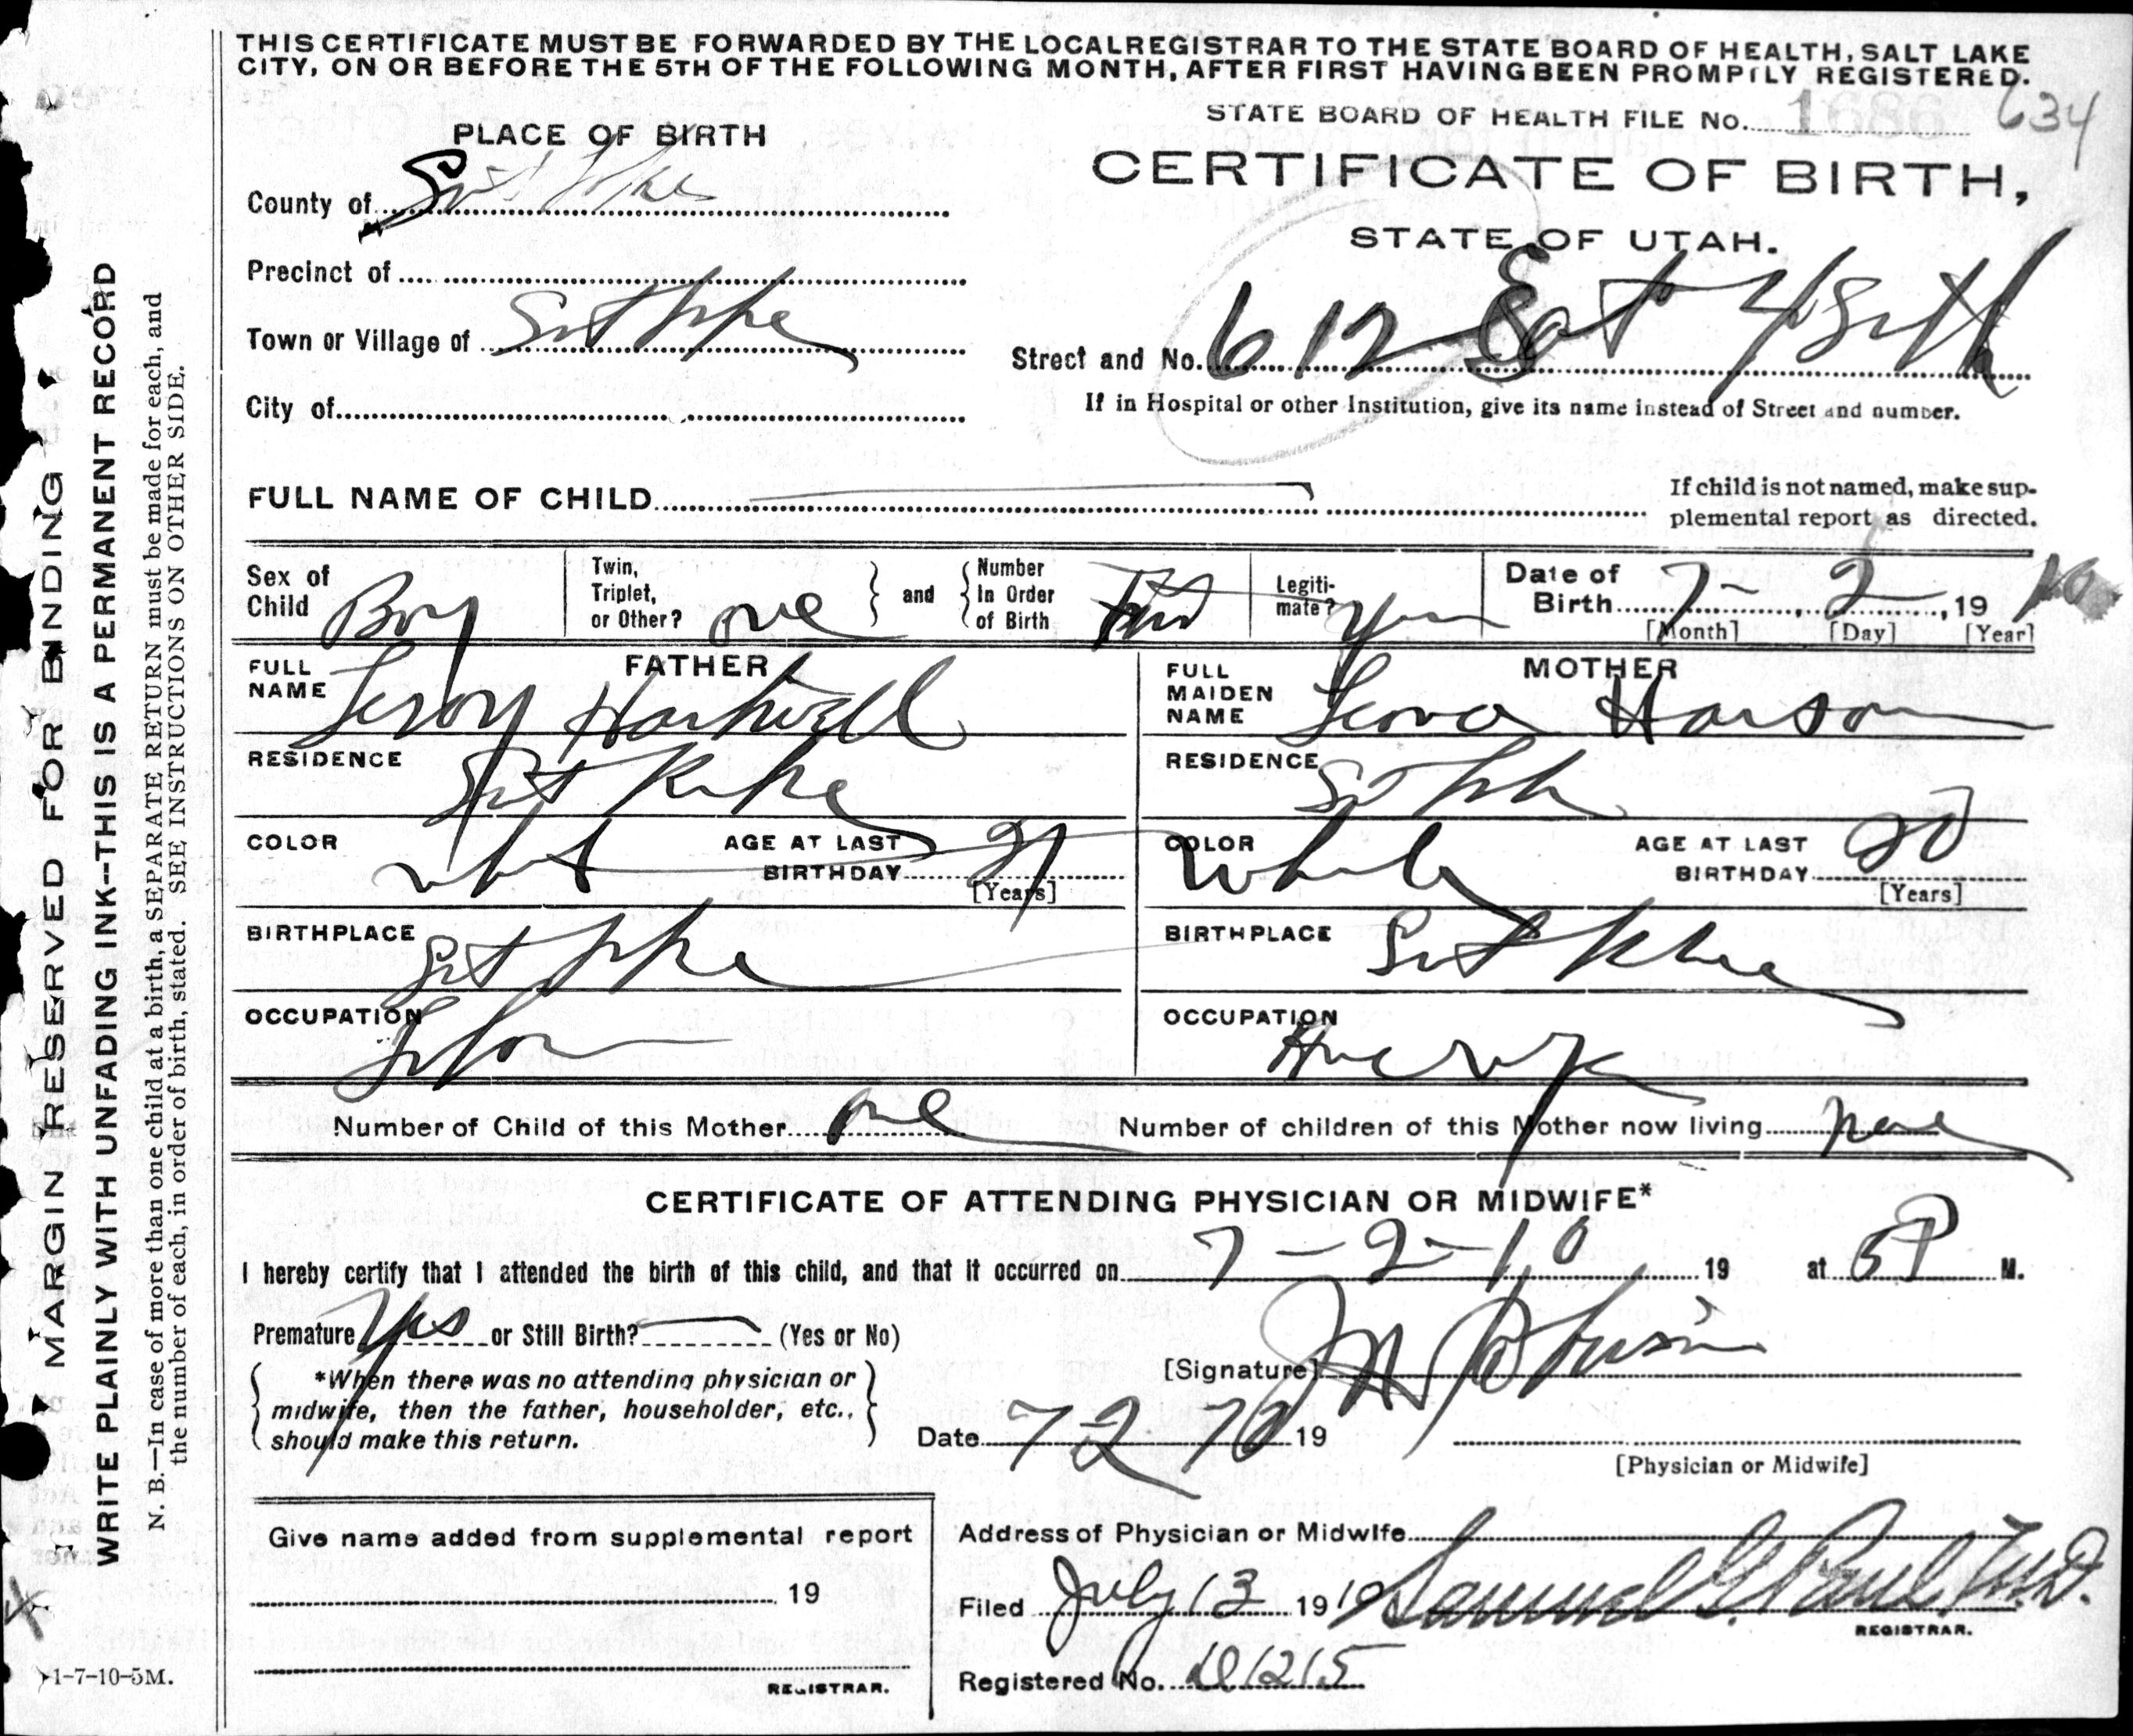 THIS CERTIFICATE MUST BE FORWARDED BY THE LOCAL REGISTRAR TO THE STATE BOARD OF HEALTH, SALT LAKE
CITY, ON OR BEFORE THE 5TH OF THE FOLLOWING MONTH, AFTER FIRST HAVING BEEN PROMPTLY REGISTERED.
STATE BOARD OF HEALTH FILE No. 1686 634
PLACE OF BIRTH
CERTIFICATE OF BIRTH,
STATE OF UTAH.
County of Salt Lake
Precinct of
Town or Village of Salt Lake
Street and No. 612 East 4 South
City of
If in Hospital or other Institution, give its name instead of Street and number.
FULL NAME OF CHILD
If child is not named, make sup-
plemental report as directed.
Sex of Child Boy
Twin, Triplet, or Other? one
and
Number In Order of Birth First
Legiti-mate? Yes
Date of Birth 7 - 2, 19 10
[Month] [Day] [Year]
FATHER
FULL NAME Leroy Hartwell
MOTHER
FULL MAIDEN NAME
RESIDENCE Salt Lake
RESIDENCE St Lake
COLOR white AGE AT LAST BIRTHDAY 21 [Years]
COLOR White AGE AT LAST BIRTHDAY 20 [Years]
BIRTHPLACE Salt Lake
BIRTHPLACE Salt Lake
OCCUPATION
OCCUPATION House Wife
Number of Child of this Mother one
Number of children of this Mother now living
CERTIFICATE OF ATTENDING PHYSICIAN OR MIDWIFE*
I hereby certify that I attended the birth of this child, and that it occurred on 7 - 2 - 10 19 at 5 P M.
Premature Yes or Still Birth? (Yes or No)
[Signature]
*When there was no attending physician or
midwife, then the father, householder, etc.,
should make this return.
Date 7 2 10 19
[Physician or Midwife]
Give name added from supplemental report
19
REGISTRAR.
Address of Physician or Midwife
Filed July 13 1910 Samuel G. Paul, M.D.
REGISTRAR.
Registered No. D1215
MARGIN RESERVED FOR BINDING
WRITE PLAINLY WITH UNFADING INK--THIS IS A PERMANENT RECORD
N. B.—In case of more than one child at a birth, a SEPARATE RETURN must be made for each, and
the number of each, in order of birth, stated. SEE INSTRUCTIONS ON OTHER SIDE.
1-7-10-5M.